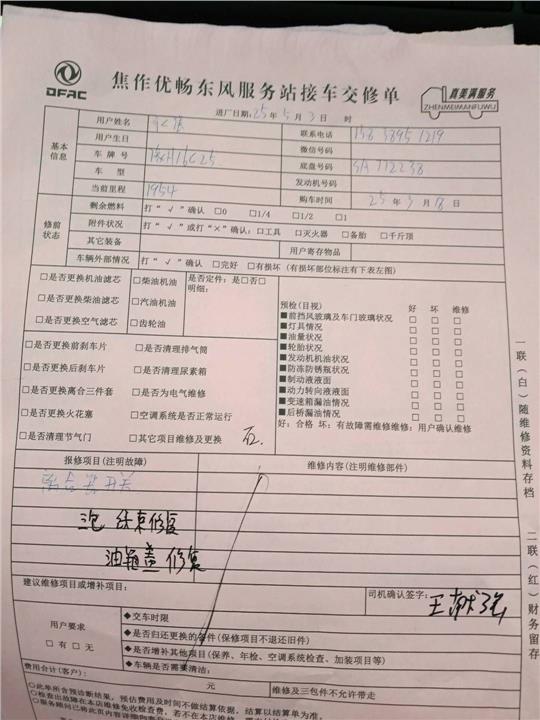 DFAC
焦作优畅东风服务站接车交修单
真美满服务
ZHENMEIMANFUWU
进厂日期:25年5月3日 时
基本信息
用户姓名
联系电话 158 3895 1219
用户生日
微信号码
车牌号
底盘号码 SA112238
车型
发动机号码
当前里程 1954
购车时间 25年3月8日
修前状态
剩余燃料 打“√”确认 □0 □1/4 □1/2 □1
附件状况 打“√”或打“×”确认:□工具 □灭火器 □备胎 □千斤顶
其它装备
用户寄存物品
车辆外部情况 打“√”确认 □完好 □有损坏(有损坏部位标注有下表左图)
□是否更换机油滤芯 □柴油机油 是否定件:是□否□
明细:
□是否更换柴油滤芯 □汽油机油
□是否更换空气滤芯 □齿轮油
□是否更换前刹车片 □是否清理排气筒
□是否更换后刹车片 □是否清理尿素箱
□是否更换离合三件套 □是否为电气维修
□是否更换火花塞 □空调系统是否正常运行
□是否清理节气门 □其它项目维修及更换
预检(目视) 好 坏 维修
■前挡风玻璃及车门玻璃状况 □ □ □
■灯具情况 □ □ □
■油量状况 □ □ □
■轮胎状况 □ □ □
■发动机机油状况 □ □ □
■防冻防锈瓶状况 □ □ □
■制动液液面 □ □ □
■动力转向液液面 □ □ □
■变速箱漏油情况 □ □ □
■后桥漏油情况 □ □ □
好:合格 坏:有故障需维修维修:用户确认维修
报修项目(注明故障) 维修内容(注明维修部件)
离合器开关
线束修复
油箱盖修复
建议维修项目或增补项目:
司机确认签字:
用户要求
□有 □无
◆交车时限
◆是否归还更换的备件(保修项目不退还旧件)
◆是否增补其他项目(保养、年检、空调系统检查、加装项目等)
◆车辆是否需要清油:
费用合计(客户): 元 维修及三包件不允许带走
○此单所含预诊断结果,预估费用及时间不做结算依据,结算以结算单为准。
一联(白)随维修资料存档
二联(红)财务留存